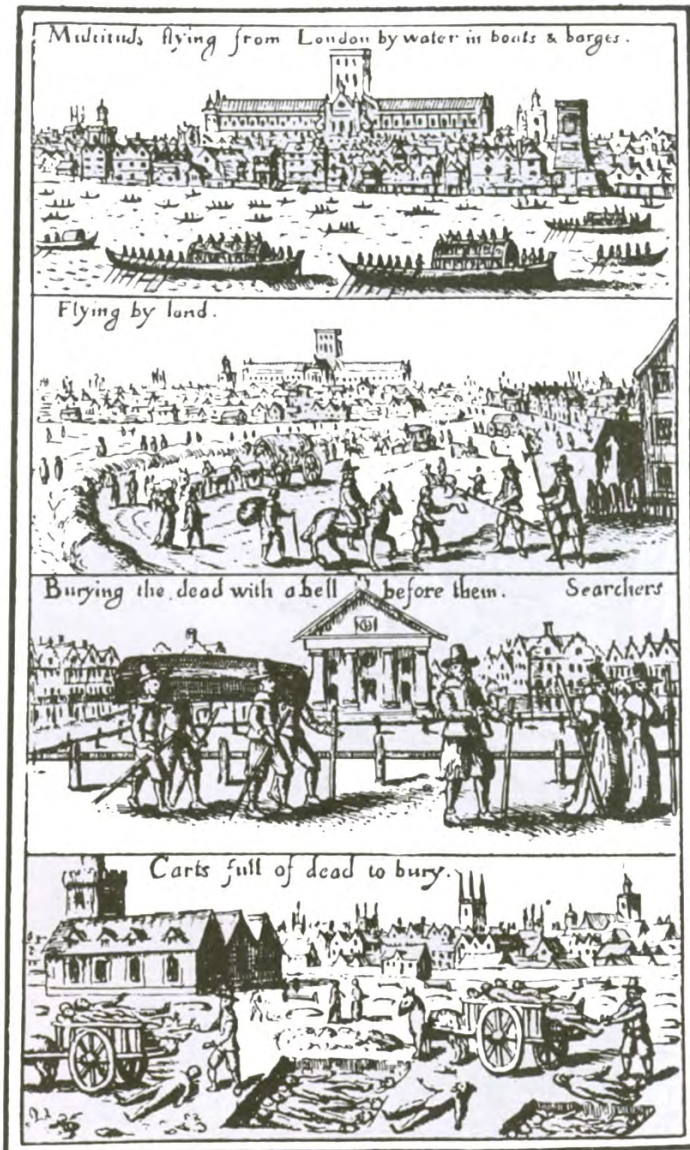 Multituds flying from London by water in boats & barges.
Flying by land.
Burying the dead with a bell before them. Searchers
Carts full of dead to bury.